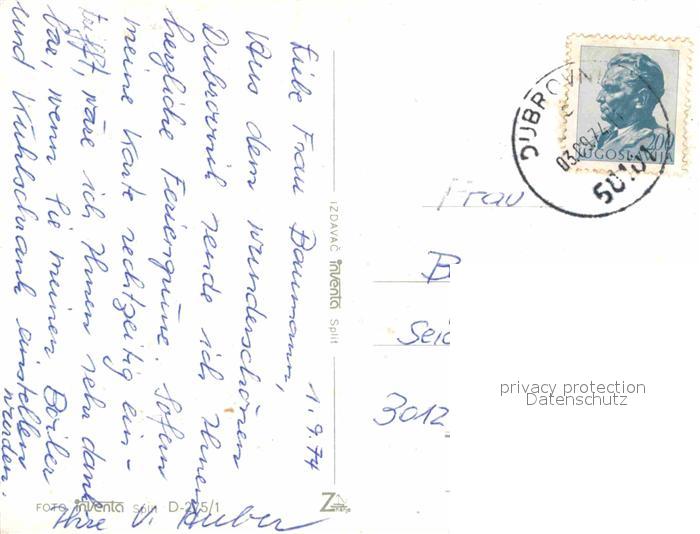 1.9.74
Liebe Frau Baumann,
Aus dem wunderschönen
Dubrovnik sende ich Ihnen
herzliche Feriengrüsse. Sofern
meine Karte rechtzeitig ein-
trifft, wäre ich Ihnen sehr dank
bar, wenn Sie meinen Boiler
und Kühlschrank einstellen
würden.
Ihre V. Huber
IZDAVAČ inventa Split
FOTO inventa Split D-275/1
DUBROVNI
03.09.74
50101
200
JUGOSLAVIJA
Frau
B
Seid
3012
privacy protection
Datenschutz